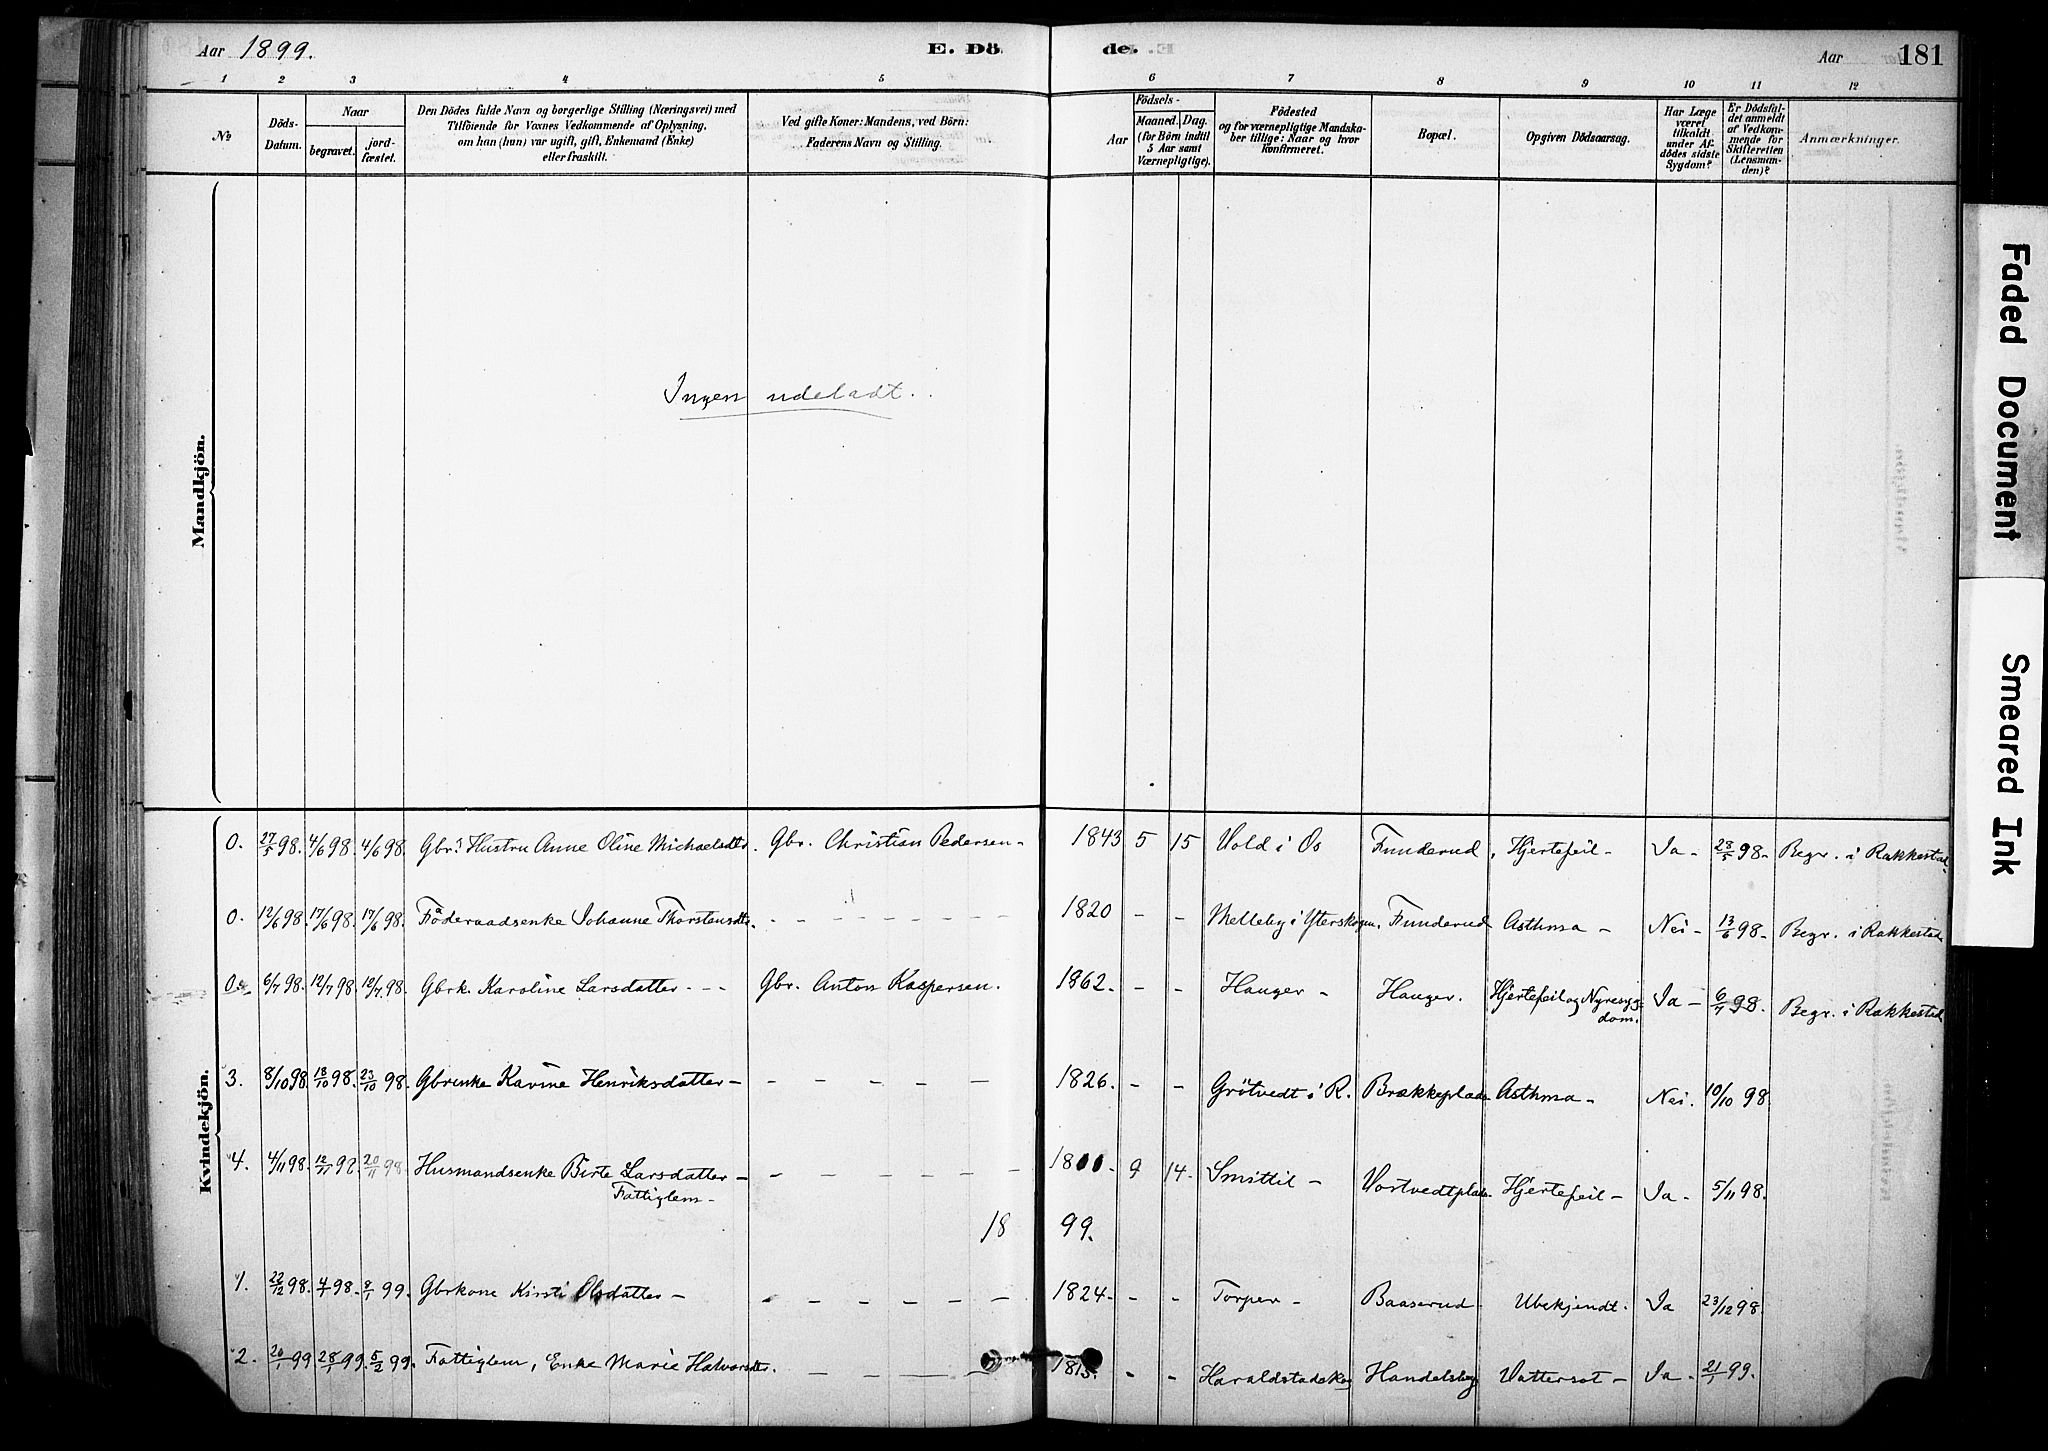 Aar 1899. E. Dö de. Aar 181
1 2 3 4 5 6 7 8 9 10 11 12
No
Döds-Datum.
Naar
begravet.
jord-fæstet.
Den Dödes fulde Navn og borgerlige Stilling (Næringsvei) med
Tilföiende for Voxnes Vedkommende af Oplysning,
om han (hun) var ugift, gift, Enkemand (Enke)
eller fraskilt.
Ved gifte Koner: Mandens, ved Börn:
Faderens Navn og Stilling.
Aar
Födsels-
Maaned. Dag.
(for Börn indtil
5 Aar samt
Værnepligtige).
Födested
og for værnepligtige Mandska-
ber tillige: Naar og hvor
konfirmeret.
Bopæl.
Opgiven Dödsaarsag.
Har Læge
været
tilkaldt
under Af-
dödes sidste
Sygdom?
Er Dödsfal-
det anmeldt
af Vedkom-
mende for
Skifteretten
(Lensman-
den)?
Anmærkninger.
Mandkjön.
Ingen udeladt.
Kvindekjön.
0. 27/5 98. 4/6 98. 4/6 98. Gbr.s Hustru Anne Oline Michaelsdtr. Gbr. Christian Pedersen - 1843 5 15 Vold i Os Funderud. Hjertefeil - Ja - 28/5 98. Begr. i Rakkestad.
0. 12/6 98. 17/6 98. 17/6 98. Föderaadsenke Johanne Thorstensdtr. - - - - - - 1820 - - Melleby i Ytterskogen. Funderud Asthma - Nei - 13/6 98. Begr. i Rakkestad
0. 6/7 98. 12/7 98. 12/7 98. Gbrk. Karoline Larsdatter - - - Gbr. Anton Kaspersen. 1862. - - Hauger - Hauger. Hjertefeil og Nyresyg-
dom. Ja - 6/7 98. Begr. i Rakkestad
3. 8/10 98. 18/10 98. 23/10 98. Gbrenke Karine Henriksdatter - - - - - - 1826. - - Grötvedt i R. Brækkeplads Asthma - Nei. 10/10 98.
4. 4/11 98. 12/11 98. 20/11 98. Husmandsenke Birte Larsdatter - - - - - - 9 14. Smittil - Vostvedtplads. Hjertefeil - Ja - 5/11 98.
Fattiglem -
18 99.
1. 22/12 98. 4/1 98. 8/1 99. Gbrkone Kirsti Olsdatter - - - - - - 1824 - - Torper - Baaserud Ubekjendt. Ja 23/12 98.
2. 20/1 99. 28/1 99. 5/2 99. Fattiglem, Enke Marie Halvorsdtr. - - - - 1815. - - Haraldstadskog Handelsby Vattersot - Ja - 21/1 99.
Faded Document
Smeared Ink